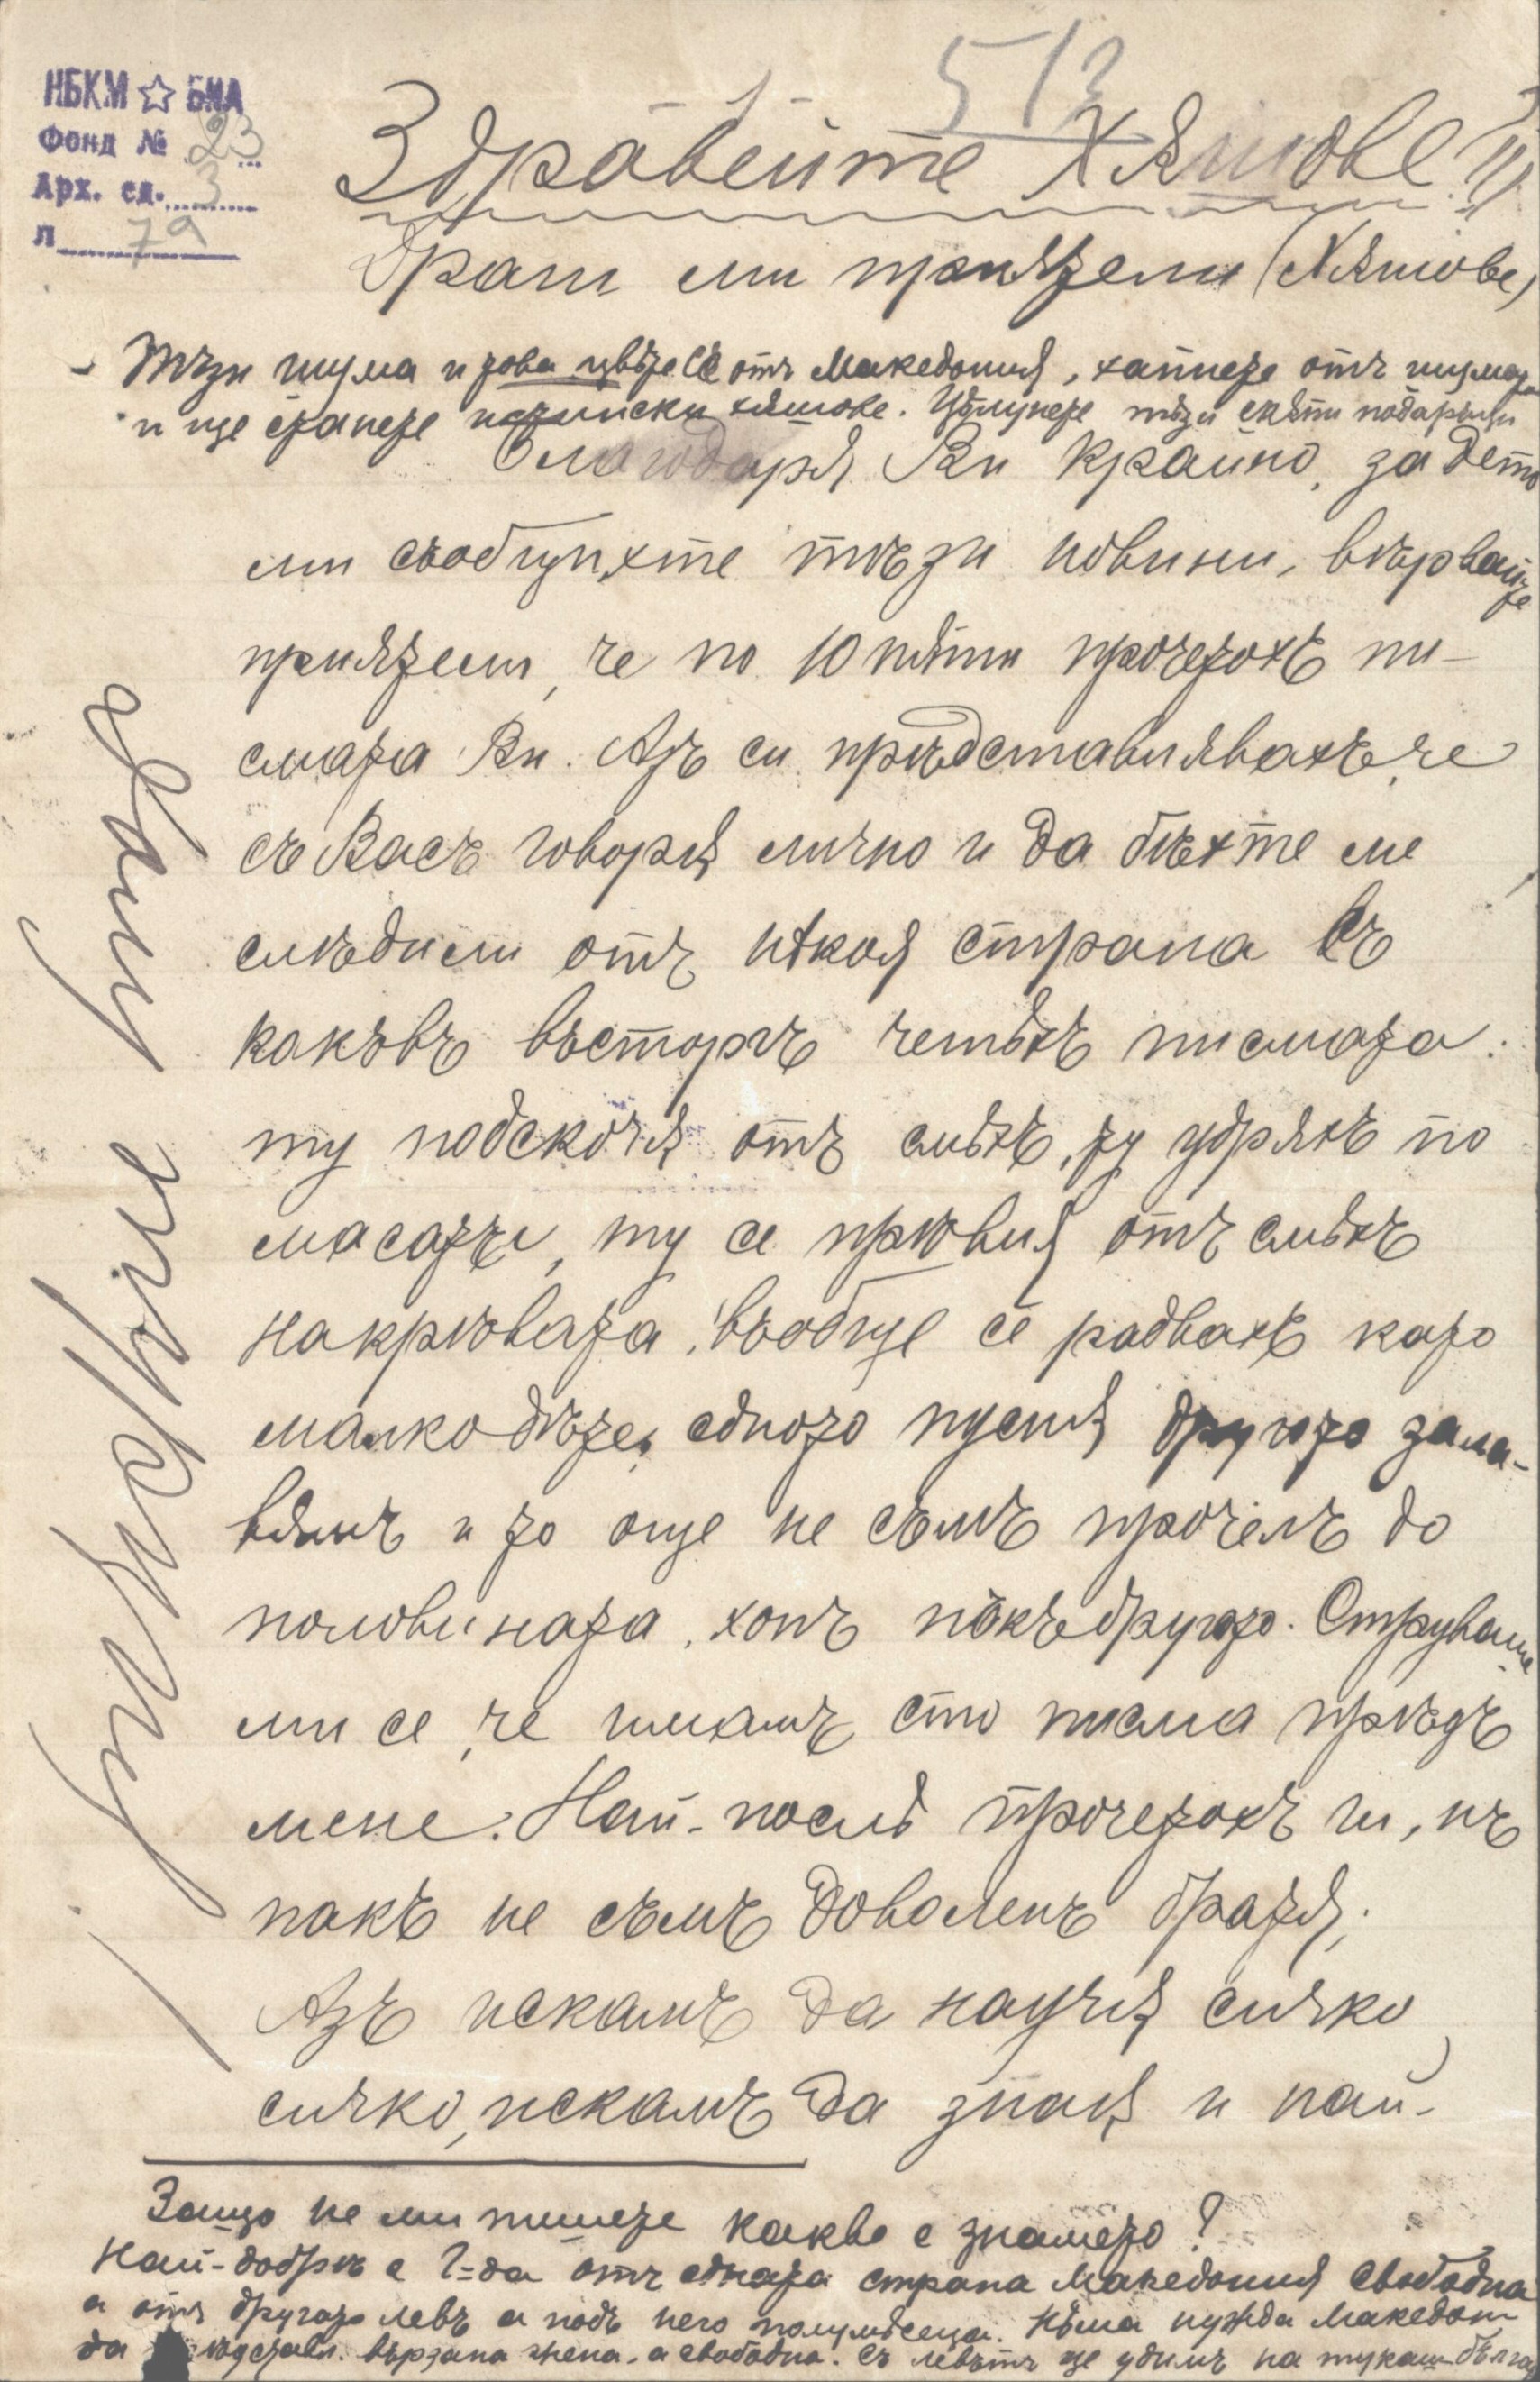 513
НБКМ ☆ БИА
Фонд № 23
Арх. ед. 3
л 79
Здравейте Хѫшове!!!
Драги ми приятели (Хѫшове)
Тѣзи шума и това цвѣте сѫ отъ Македония, хапнете отъ шумата
и ще станете истински хѫшове. Цѣлунете тѣзи скѫпи подаръци
Благодарѭ Ви крайно, за дето
ми съобщихте тѣзи новини, вѣрвайте
приятели, че по 10 пѫти прочетохъ пи-
смата Ви. Азъ си прѣдставлявахъ, че
съ Васъ говорѭ лично и да бѣхте ме
слѣдили отъ нѣкоя страна съ
какъвъ въсторгъ четѣхъ писмата.
ту подскочѭ отъ смѣхъ, ту удряхъ по
масатъ, ту се прѣвия отъ смѣхъ
на кревата, въобще се радвахъ като
малко дѣте, едното пуснѫ другото зала-
вямъ и то още не съмъ прочелъ до
половината, хопъ пъкъ другото. Струваше
ми се, че имамъ сто писма прѣдъ
мене. Най-послѣ прочетохъ ги, нъ
пакъ не съмъ доволенъ братя;
Азъ искамъ да научѫ сичко
сичко, искамъ да знаѭ и най-
Защо не ми пишете какво е знамето?
Най-добрѣ е г-да отъ едната страна Македония свободна
а отъ другата левъ а подъ него полумѣсеца. Нѣма нужда Македон
да прѣдставл. вързана жена, а свободна. Съ левътъ ще удимъ на тукаш. бълга